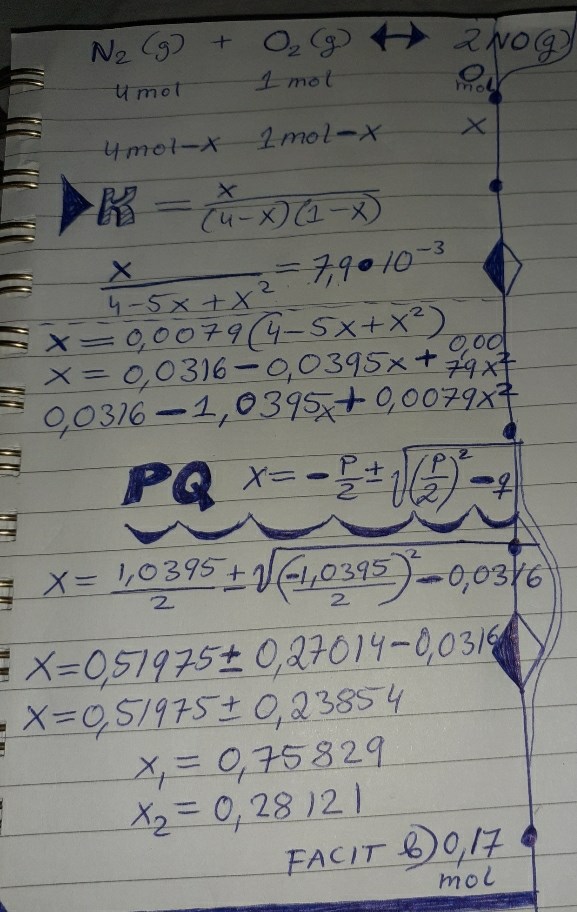 N₂(g) + O₂(g) ↔ 2NO(g)
4mol 1 mol 0 mol
4mol-x 1mol-x x
K = x / (4-x)(1-x)
x / 4-5x+x² = 7,9•10⁻³
x = 0,0079(4-5x+x²)
x = 0,0316-0,0395x + 0,0079x²
0,0316-1,0395x + 0,0079x²
PQ x = -P/2 ± √(P/2)² - q
x = 1,0395/2 ± √(-1,0395/2)² - 0,0316
x = 0,51975 ± 0,27014-0,0316
x = 0,51975 ± 0,23854
x₁ = 0,75829
x₂ = 0,28121
FACIT b) 0,17
mol